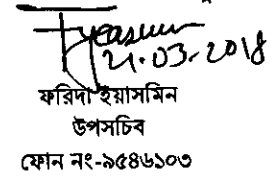 21.03.2018
ফরিদা ইয়াসমিন
উপসচিব
ফোন নং-৯৫৪৬১০৩